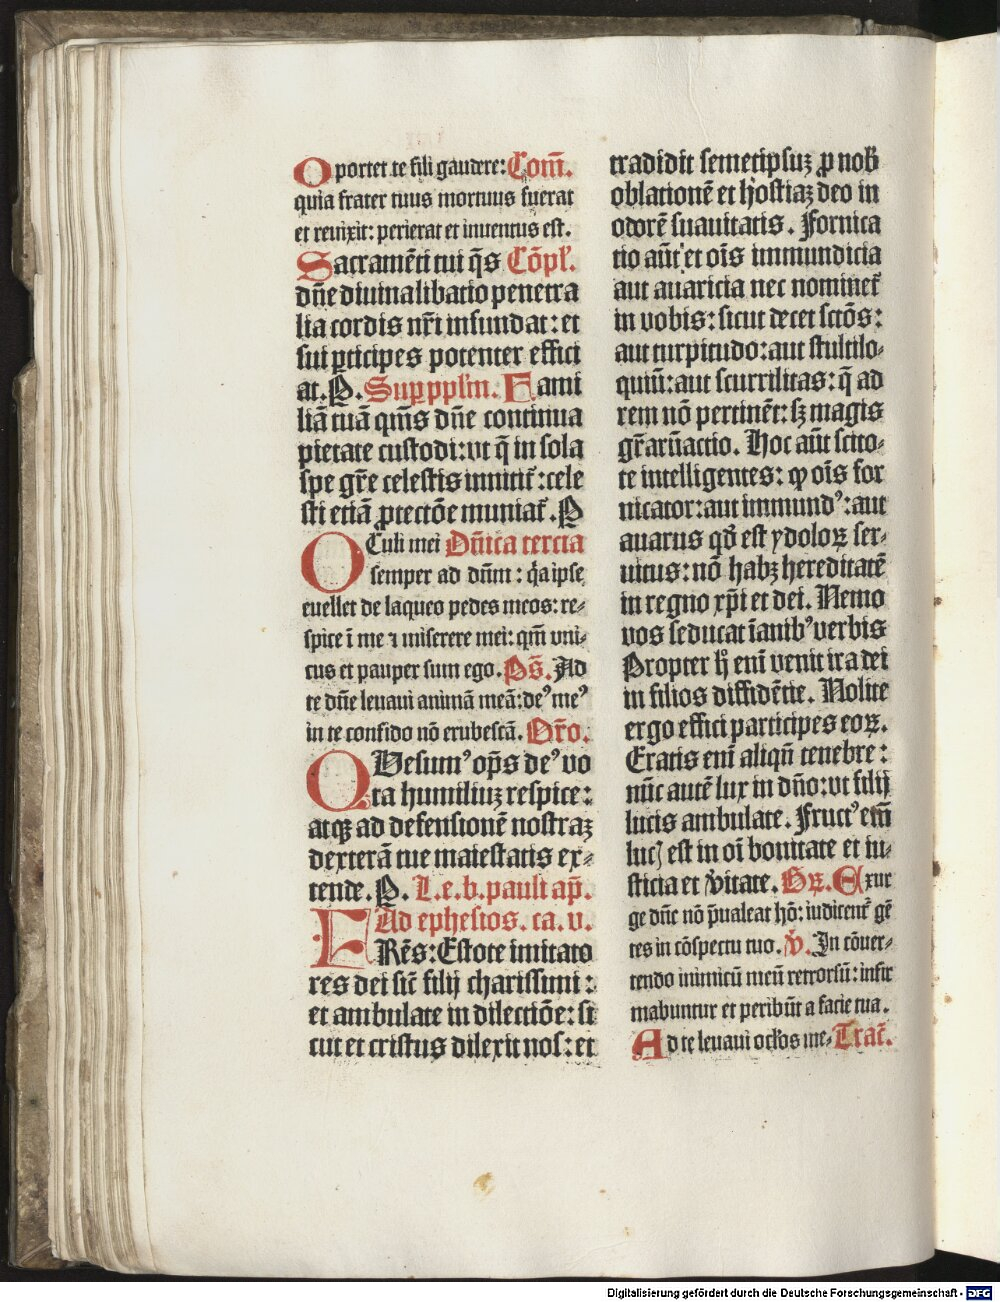 Oportet te fili gaudere: Com̄.
quia frater tuus mortuus fuerat
et reuixit: perierat et inuentus est.
Sacramēti tui q̄s Cōpl'.
dn̄e diuina libatio penetra
lia cordis nr̄i infundat: et
sui ꝑticipes potenter effici
at. P. Suꝑ pplm̄. Fami
liā tuā qm̄s dn̄e continua
pietate custodi: ut q̄ in sola
spe gr̄e celestis innitit̄: cele
sti etiā ꝓtectōe muniat̄. P
OCuli mei Dn̄ica tercia
semper ad dn̄m: q̇a ipse
euellet de laqueo pedes meos: re-
spice ī me ⁊ miserere mei: qm̄ vni-
cus et pauper sum ego. Ps̄. Ad
te dn̄e leuaui animā meā: deꝰ meꝰ
in te confido nō erubescā. Or̄o.
QVesumꝰ op̄s deꝰ vo
ta humiliuꝫ respice:
atqꝫ ad defensionē nostraꝫ
dexterā tue maiestatis ex-
tende. P. L. e. b. pauli ap̄.
Ad ephesios. ca. v.
FRēs: Estote imitato
res dei sic̄ filij charissimi:
et ambulate in dilectiōe: si
cut et cristus dilexit nos: et
tradidit semetipsuꝫ ꝓ nob̄
oblationē et hostiaꝫ deo in
odorē suauitatis. Fornica
tio aūt et oīs immundicia
aut auaricia nec nominet̄
in vobis: sicut decet sctōs:
aut turpitudo: aut stultilo-
quiū: aut scurrilitas: q̄ ad
rem nō pertinēt: sꝫ magis
gr̄aꝝ actio. Hoc aūt scito-
te intelligentes: ꝙ oīs for
nicator: aut immundꝰ: aut
auarus qd̄ est ydoloꝝ ser-
uitus: nō habꝫ hereditatē
in regno xp̄i et dei. Nemo
vos seducat īanibꝰ verbis
Propter h̄ enī venit ira dei
in filios diffidētie. Nolite
ergo effici participes eoꝝ.
Eratis enī aliqn̄ tenebre:
nūc autē lux in dn̄o: vt filij
lucis ambulate. Fructꝰ em̄
lucꝭ est in oī bonitate et iu-
sticia et v̄itate. Gꝝ. Exur
ge dn̄e nō p̄ualeat hō: iudicent̄ gē
tes in cōspectu tuo. v̄. In cōuer-
tendo inimicū meū retrorsū: infir
mabuntur et peribūt a facie tua.
Ad te leuaui ocl'os me- Tract̄.
Digitalisierung gefördert durch die Deutsche Forschungsgemeinschaft - DFG